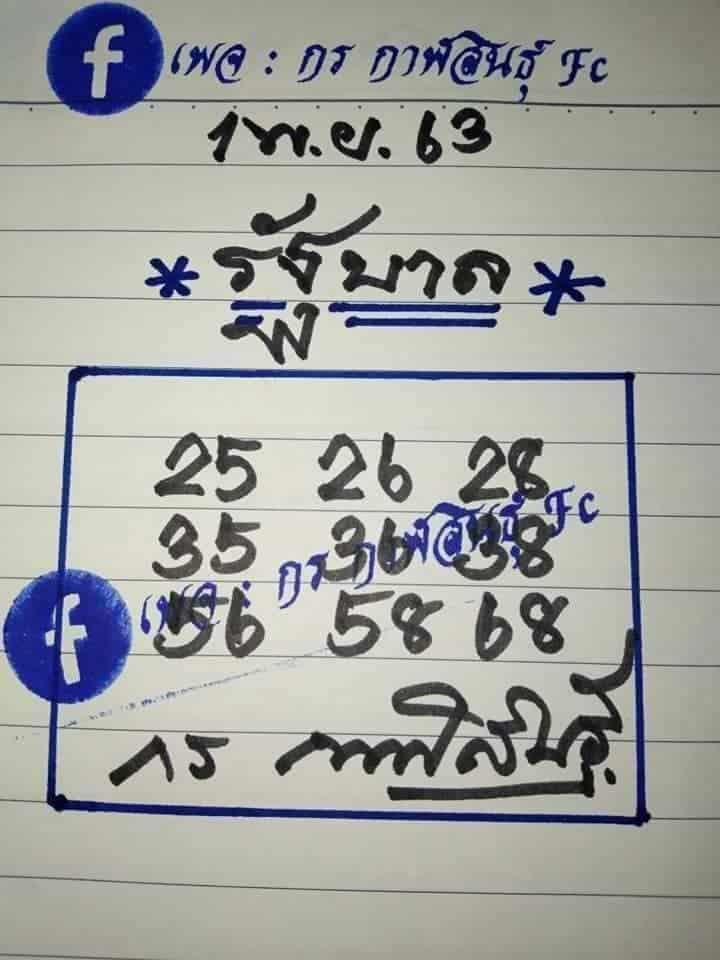 f เพจ : กร กาฬสินธุ์ Fc
1 พ.ย. 63
* รัฐบาล *
25 26 28
35 36 38
f เพจ : กร กาฬสินธุ์ Fc
56 58 68
กร กาฬสินธุ์.